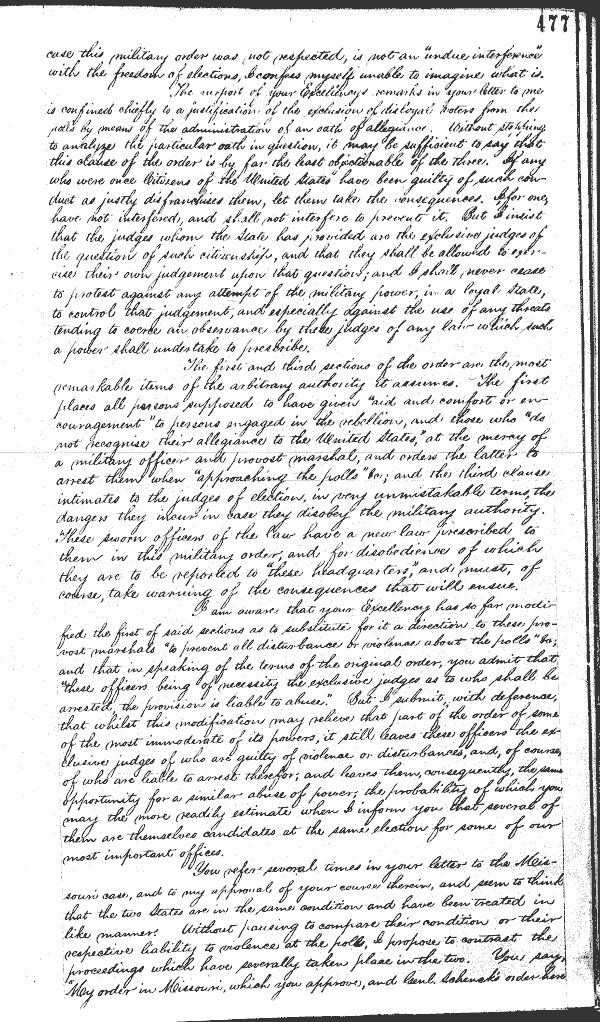 477
case this military order was not respected, is not an "undue interference"
with the freedom of elections, I confess myself unable to imagine what is.
The purport of your Excellency's remarks in your letter to me
is confined chiefly to a justification of the exclusion of disloyal voters from the
polls by means of the administration of an oath of allegiance. Without stopping
to analyze the particular oath in question, it may be sufficient to say that
this clause of the order is by far the least objectionable of the three. If any
who were once Citizens of the United States have been guilty of such con-
duct as justly disfranchises them, let them take the consequences. I, for one,
have not interfered, and shall not interfere to prevent it. But I insist
that the judges whom the State has provided are the exclusive judges of
the question of such citizenship, and that they shall be allowed to exer-
cise their own judgement upon that question; and I shall never cease
to protest against any attempt of the military power, in a loyal State,
to control that judgement, and especially against the use of any threats
tending to coerce an observance by these judges of any law which such
a power shall undertake to prescribe.
The first and third sections of the order are the most
remarkable items of the arbitrary authority it assumes. The first
places all persons supposed to have given "aid and comfort or en-
couragement" to persons engaged in the rebellion, and those who "do
not recognise their allegiance to the United States," at the mercy of
a military officer and provost marshal, and orders the latter to
arrest them when "approaching the polls" &c; and the third clause
intimates to the judges of election, in very unmistakable terms, the
dangers they incur in case they disobey the military authority.
These sworn officers of the law have a new law prescribed to
them in this military order, and for disobedience of which
they are to be reported to "these headquarters," and must, of
course, take warning of the consequences that will ensue.
I am aware that your Excellency has so far modi-
fied the first of said sections as to substitute for it a direction to these pro-
vost marshals "to prevent all disturbance or violence about the polls" &c;
and that in speaking of the terms of the original order, you admit that
"these officers being of necessity the exclusive judges as to who shall be
arrested, the provision is liable to abuse." But I submit, with deference,
that whilst this modification may relieve that part of the order of some
of the most immoderate of its powers, it still leaves these officers the ex-
clusive judges of who are guilty of violence or disturbances, and, of course,
of who are liable to arrest therefor; and leaves them, consequently, the same
opportunity for a similar abuse of power; the probability of which you
may the more readily estimate when I inform you that several of
them are themselves candidates at the same election for some of our
most important offices.
You refer several times in your letter to the Mis-
souri case, and to my approval of your course therein, and seem to think
that the two States are in the same condition and have been treated in
like manner. Without pausing to compare their condition or their
respective liability to violence at the polls, I propose to contrast the
proceedings which have severally taken place in the two. You say,
"My order in Missouri, which you approve, and Genl. Schenck's order here